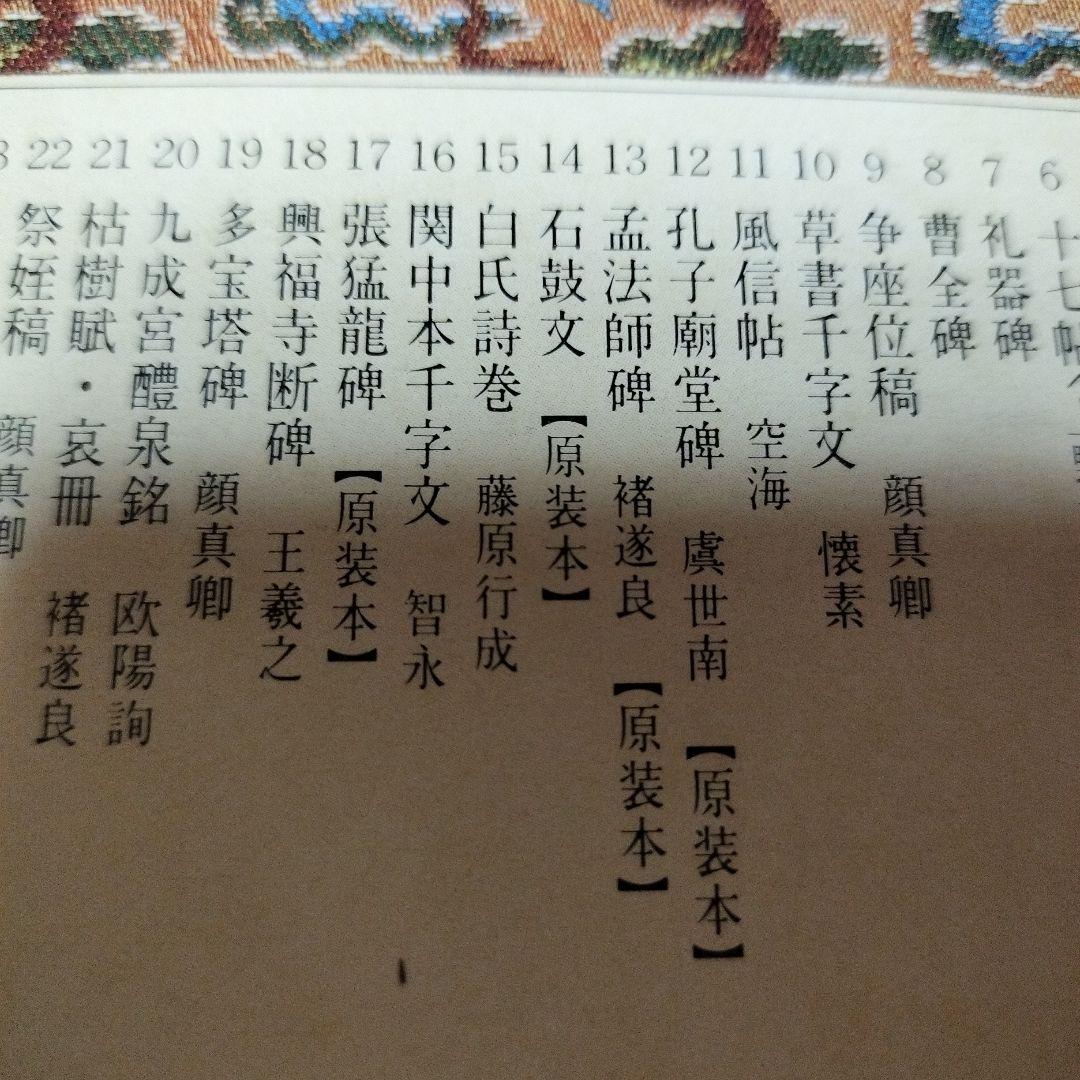 6 十七帖
7 礼器碑
8 曹全碑
9 争座位稿 顔真卿
10 草書千字文 懐素
11 風信帖 空海
12 孔子廟堂碑 虞世南 【原装本】
13 孟法師碑 褚遂良 【原装本】
14 石鼓文 【原装本】
15 白氏詩巻 藤原行成
16 関中本千字文 智永
17 張猛龍碑 【原装本】
18 興福寺断碑 王羲之
19 多宝塔碑 顔真卿
20 九成宮醴泉銘 欧陽詢
21 枯樹賦・哀冊 褚遂良
22 祭姪稿 顔真卿
3